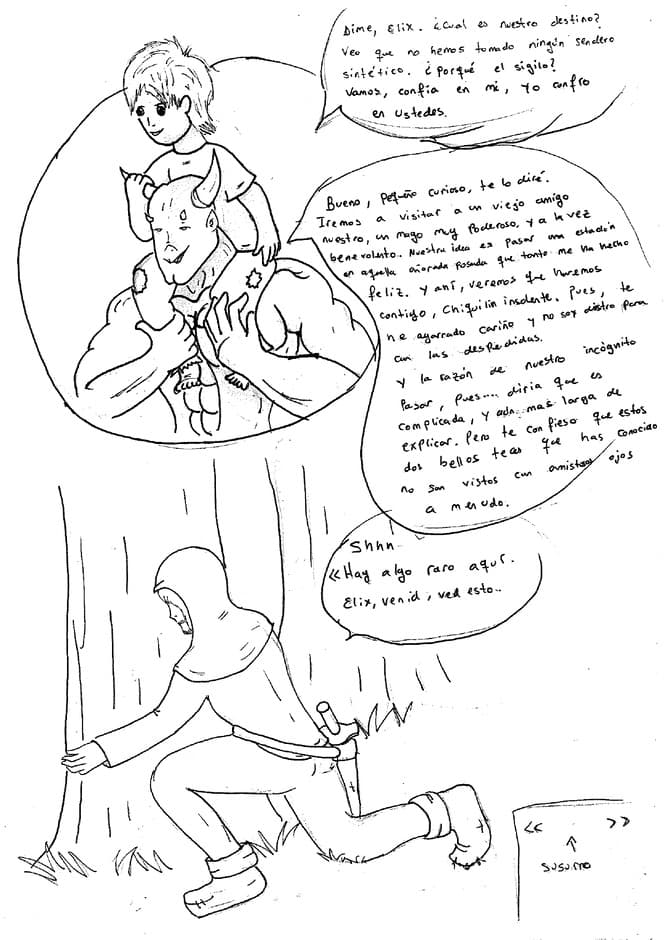 Dime, Elix. ¿Cual es nuestro destino?
Veo que no hemos tomado ningún sendero
sintético. ¿Porqué el sigilo?
Vamos, confía en mi, Yo confío
en ustedes.
Bueno, pequeño curioso, te lo diré.
Iremos a visitar a un viejo amigo
nuestro, un mago muy poderoso, y a la vez
benevolento. Nuestra idea es pasar una estación
en aquella añorada posada que tanto me ha hecho
feliz. Y ahí, veremos que haremos
contigo, Chiquilín insolente. Pues, te
he agarrado cariño y no soy diestro para
con las despedidas.
Y la razón de nuestro incógnito
pasar, pues.... diría que es
complicada, y aún mas larga de
explicar. Pero te confieso que estos
dos bellos que has conocido
no son vistos con amistosos ojos
a menudo.
Shhh
«Hay algo raro aquí.
Elix, venid, ved esto..
« »
↑
susurro